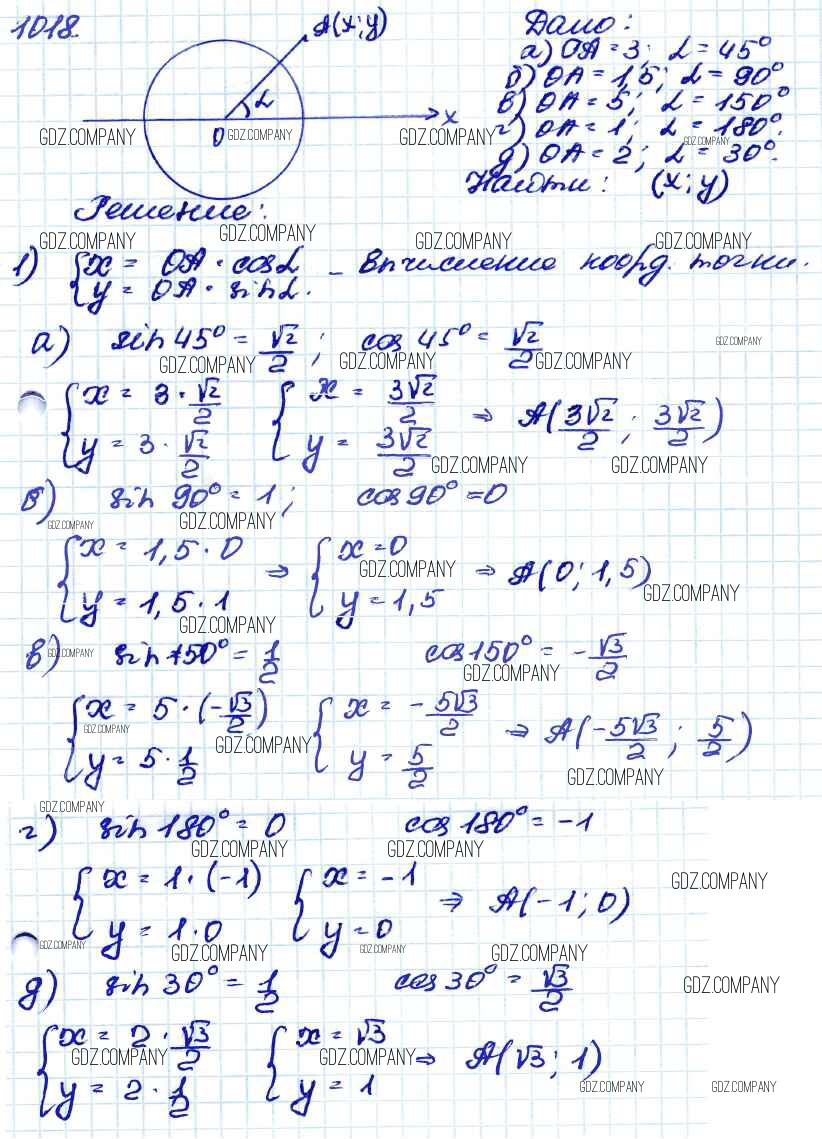 1018.
A(x; y)
α
O
x
GDZ.COMPANY GDZ.COMPANY GDZ.COMPANY
Дано:
а) OA = 3; α = 45°
б) OA = 1,5; α = 90°
в) OA = 5; α = 150°
г) OA = 1; α = 180°.
GDZ.COMPANY
д) OA = 2; α = 30°.
Найти: (x; y)
Решение:
GDZ.COMPANY GDZ.COMPANY GDZ.COMPANY GDZ.COMPANY
1) {x = OA · cosα – вычисление коорд. точки.
{y = OA · sinα.
а) sin 45° = √2/2; cos 45° = √2/2
GDZ.COMPANY GDZ.COMPANY GDZ.COMPANY GDZ.COMPANY
{x = 3 · √2/2 {x = 3√2/2 ⇒ A(3√2/2; 3√2/2)
{y = 3 · √2/2 {y = 3√2/2
GDZ.COMPANY GDZ.COMPANY
б) sin 90° = 1; cos 90° = 0
GDZ.COMPANY GDZ.COMPANY
{x = 1,5 · 0 ⇒ {x = 0 ⇒ A(0; 1,5)
{y = 1,5 · 1 {y = 1,5
GDZ.COMPANY GDZ.COMPANY GDZ.COMPANY
в) sin 150° = 1/2 cos 150° = -√3/2
GDZ.COMPANY GDZ.COMPANY
{x = 5 · (-√3/2) {x = -5√3/2 ⇒ A(-5√3/2; 5/2)
{y = 5 · 1/2 {y = 5/2
GDZ.COMPANY GDZ.COMPANY GDZ.COMPANY
GDZ.COMPANY
г) sin 180° = 0 cos 180° = -1
GDZ.COMPANY GDZ.COMPANY
{x = 1 · (-1) {x = -1 ⇒ A(-1; 0)
{y = 1 · 0 {y = 0
GDZ.COMPANY
GDZ.COMPANY GDZ.COMPANY GDZ.COMPANY GDZ.COMPANY
д) sin 30° = 1/2 cos 30° = √3/2
GDZ.COMPANY
{x = 2 · √3/2 {x = √3 ⇒ A(√3; 1)
{y = 2 · 1/2 {y = 1
GDZ.COMPANY GDZ.COMPANY GDZ.COMPANY GDZ.COMPANY